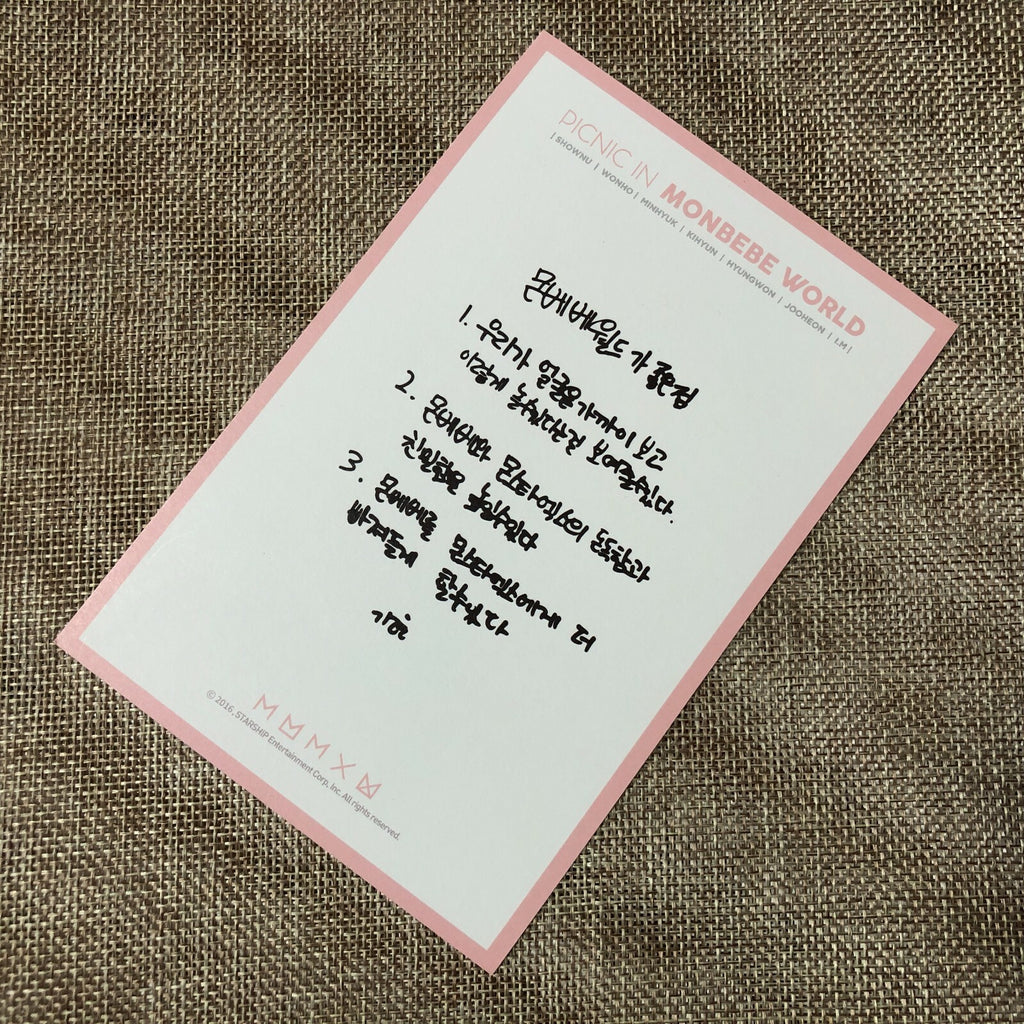 PICNIC IN MONBEBE WORLD
| SHOWNU | WONHO | MINHYUK | KIHYUN | HYUNGWON | JOOHEON | I.M |
몬베베월드가 좋은점
1. 우리가 얼굴을 가까이 보고
이렇게 놀수있다는걸 보여줄수있다.
2. 몬베베와 몬스타엑스의 돈독함과
친밀함을 높일수있다
3. 몬베베를 몬스타엑스에게 더
빠져들게 할수있다
기현
© 2016. STARSHIP Entertainment Corp, Inc. All rights reserved.